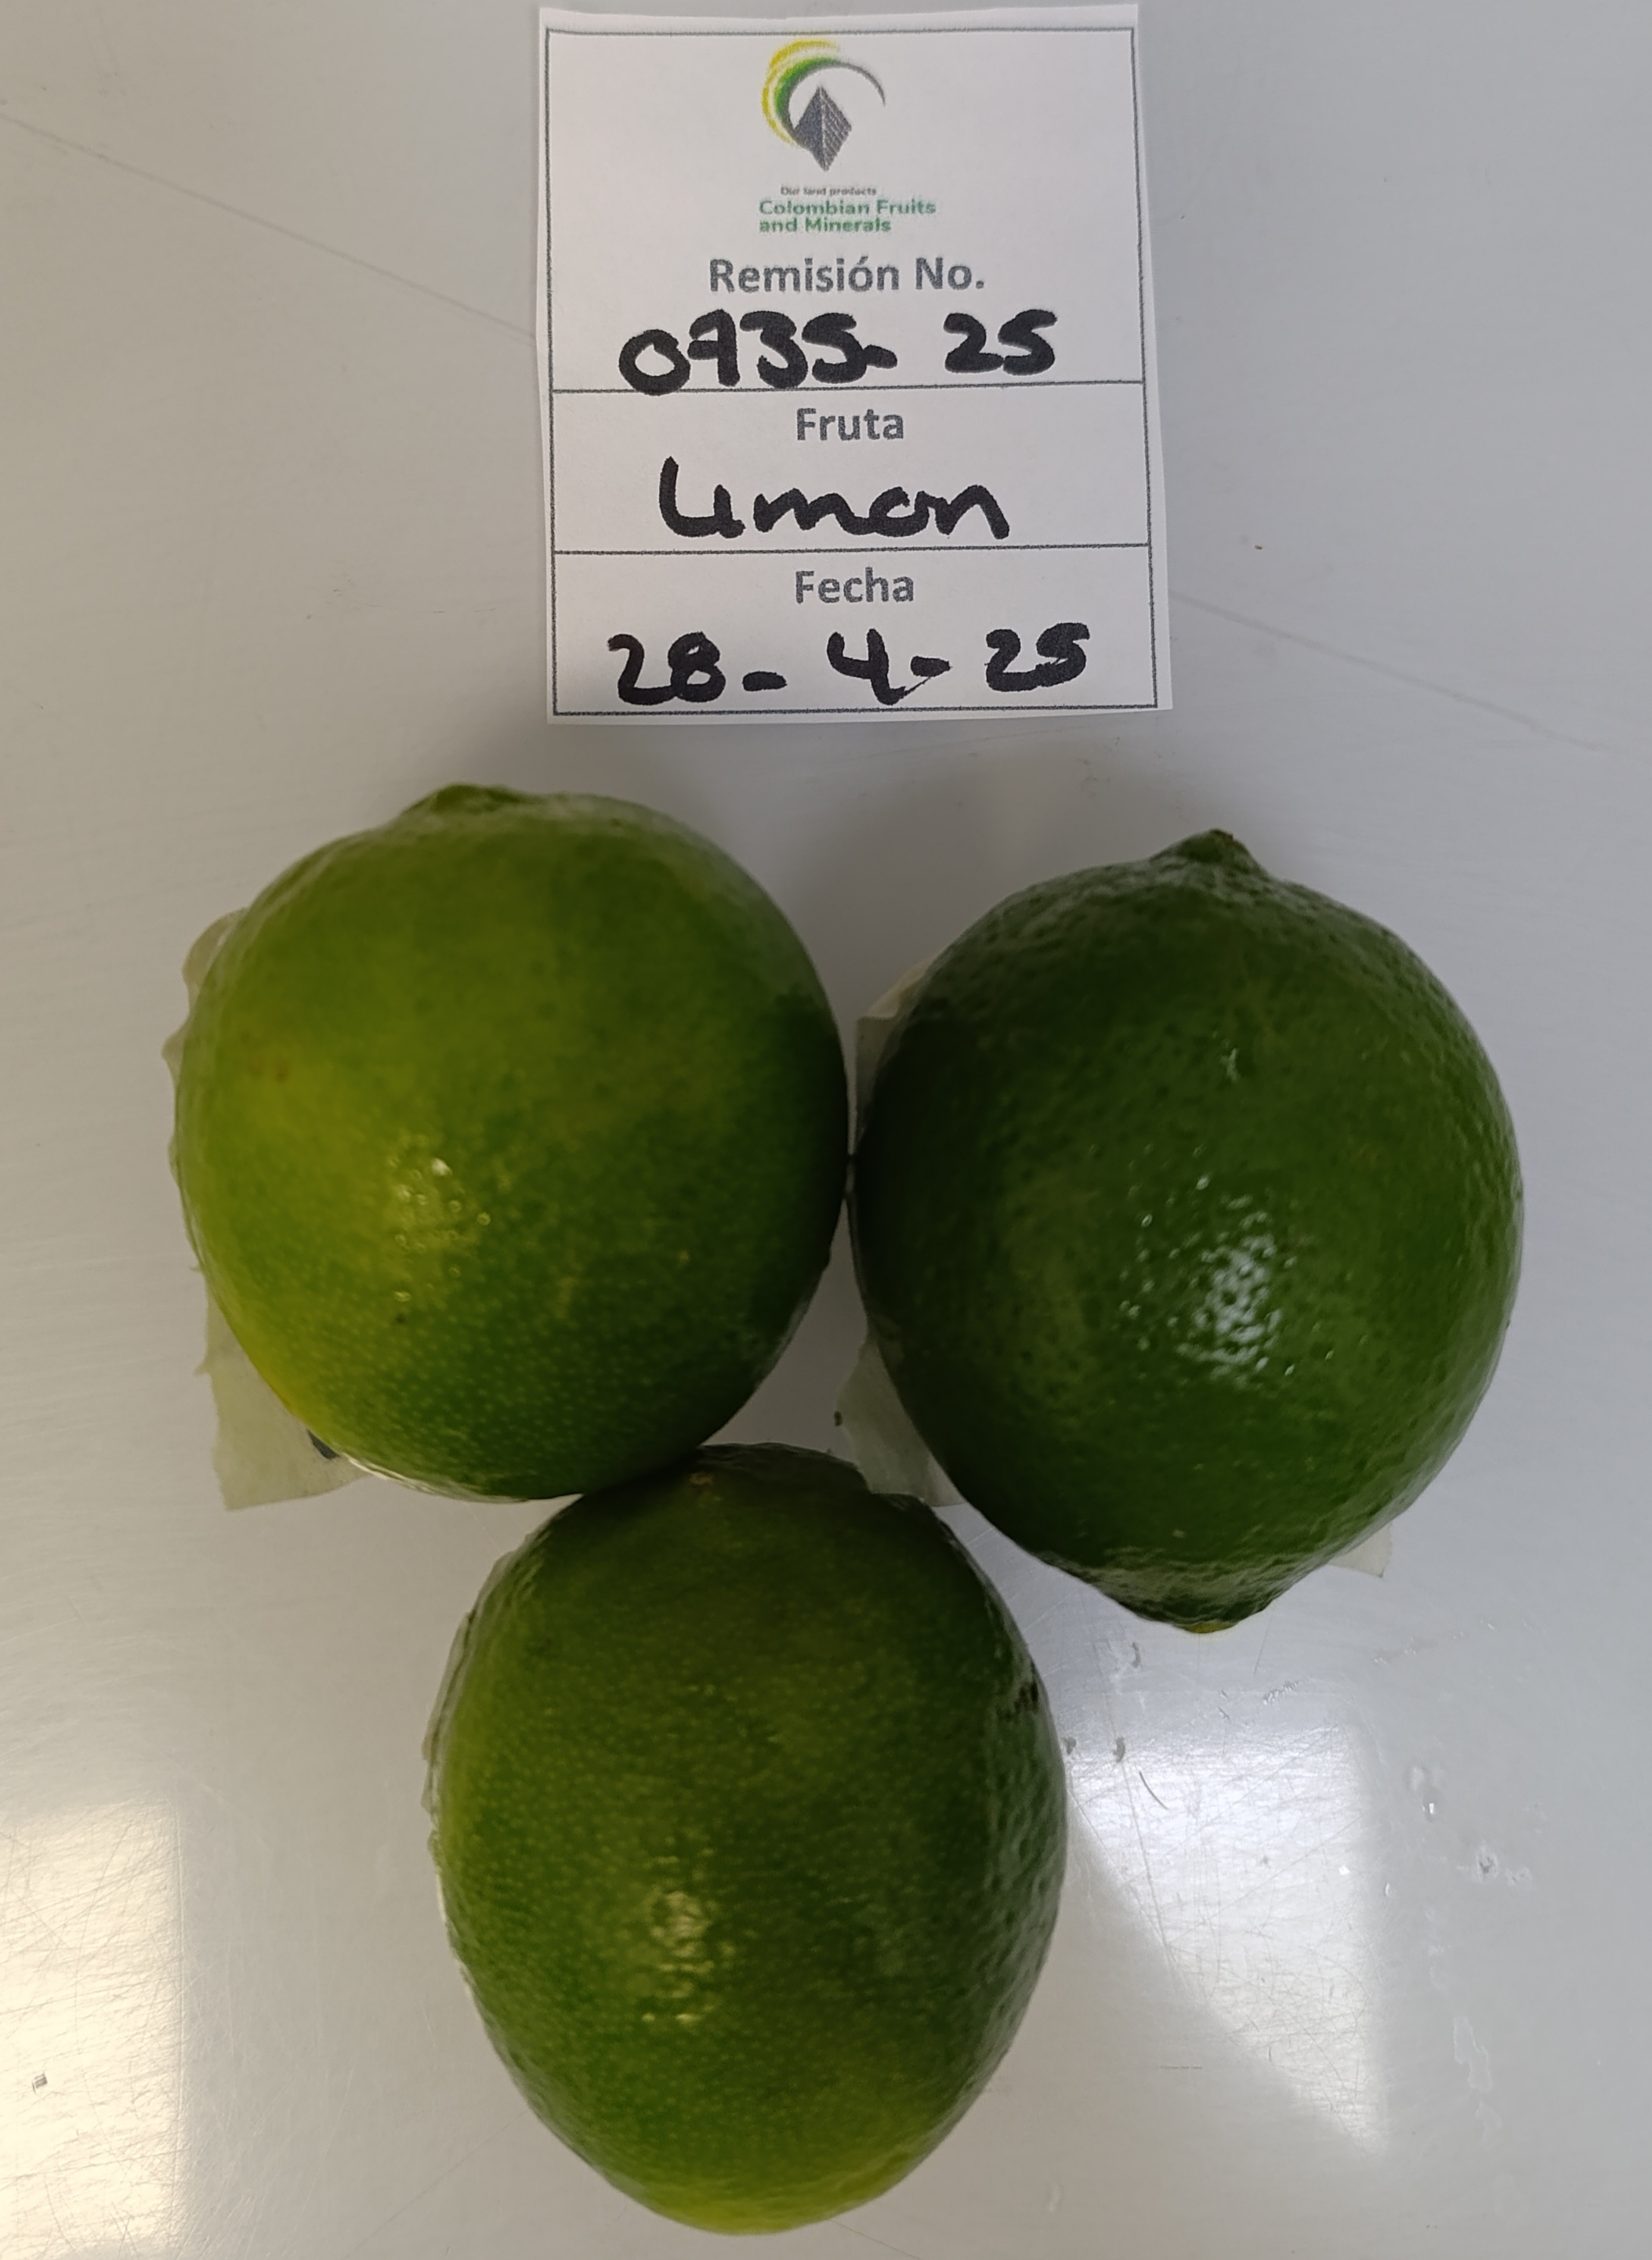 Our land products
Colombian Fruits
and Minerals
Remisión No.
0735- 25
Fruta
Limon
Fecha
28- 4- 25